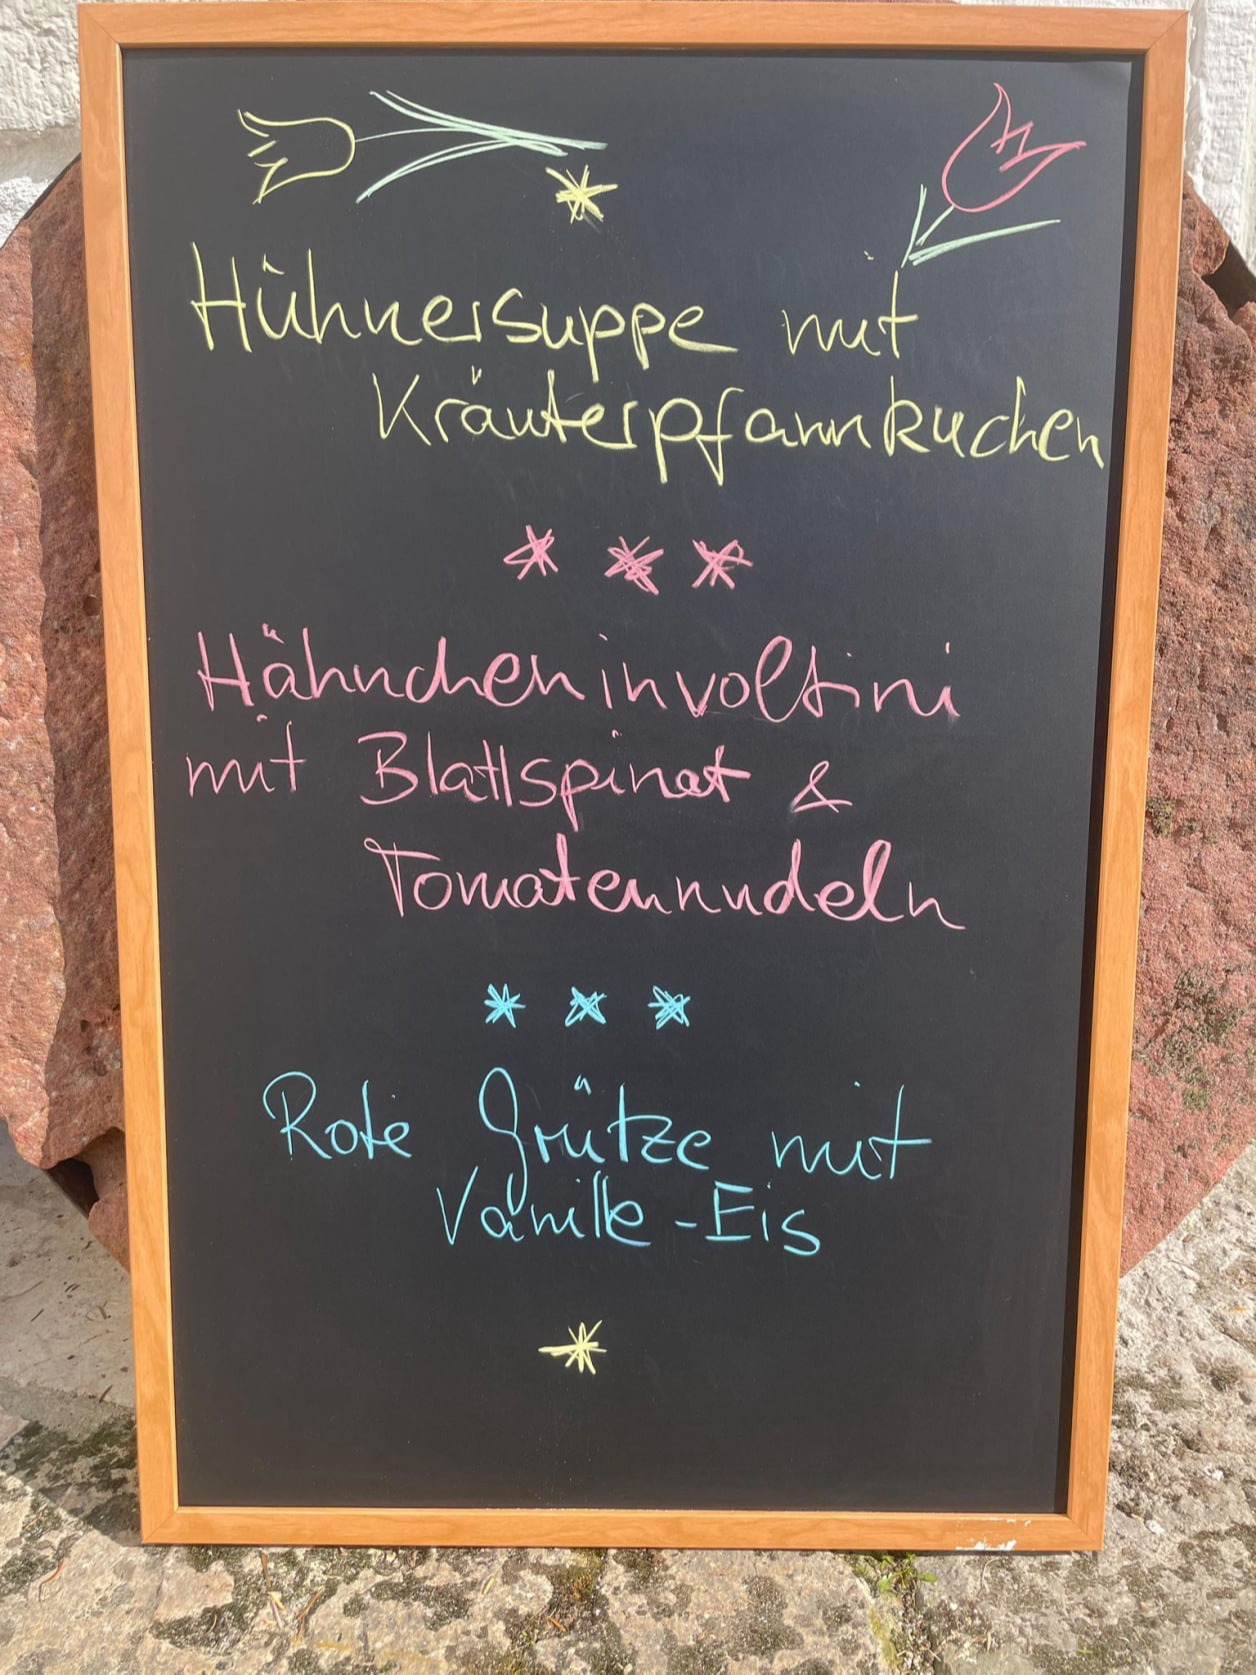 Hühnersuppe mit
Kräuterpfannkuchen
Hähncheninvoltini
mit Blattspinat &
Tomatennudeln
Rote Grütze mit
Vanille-Eis